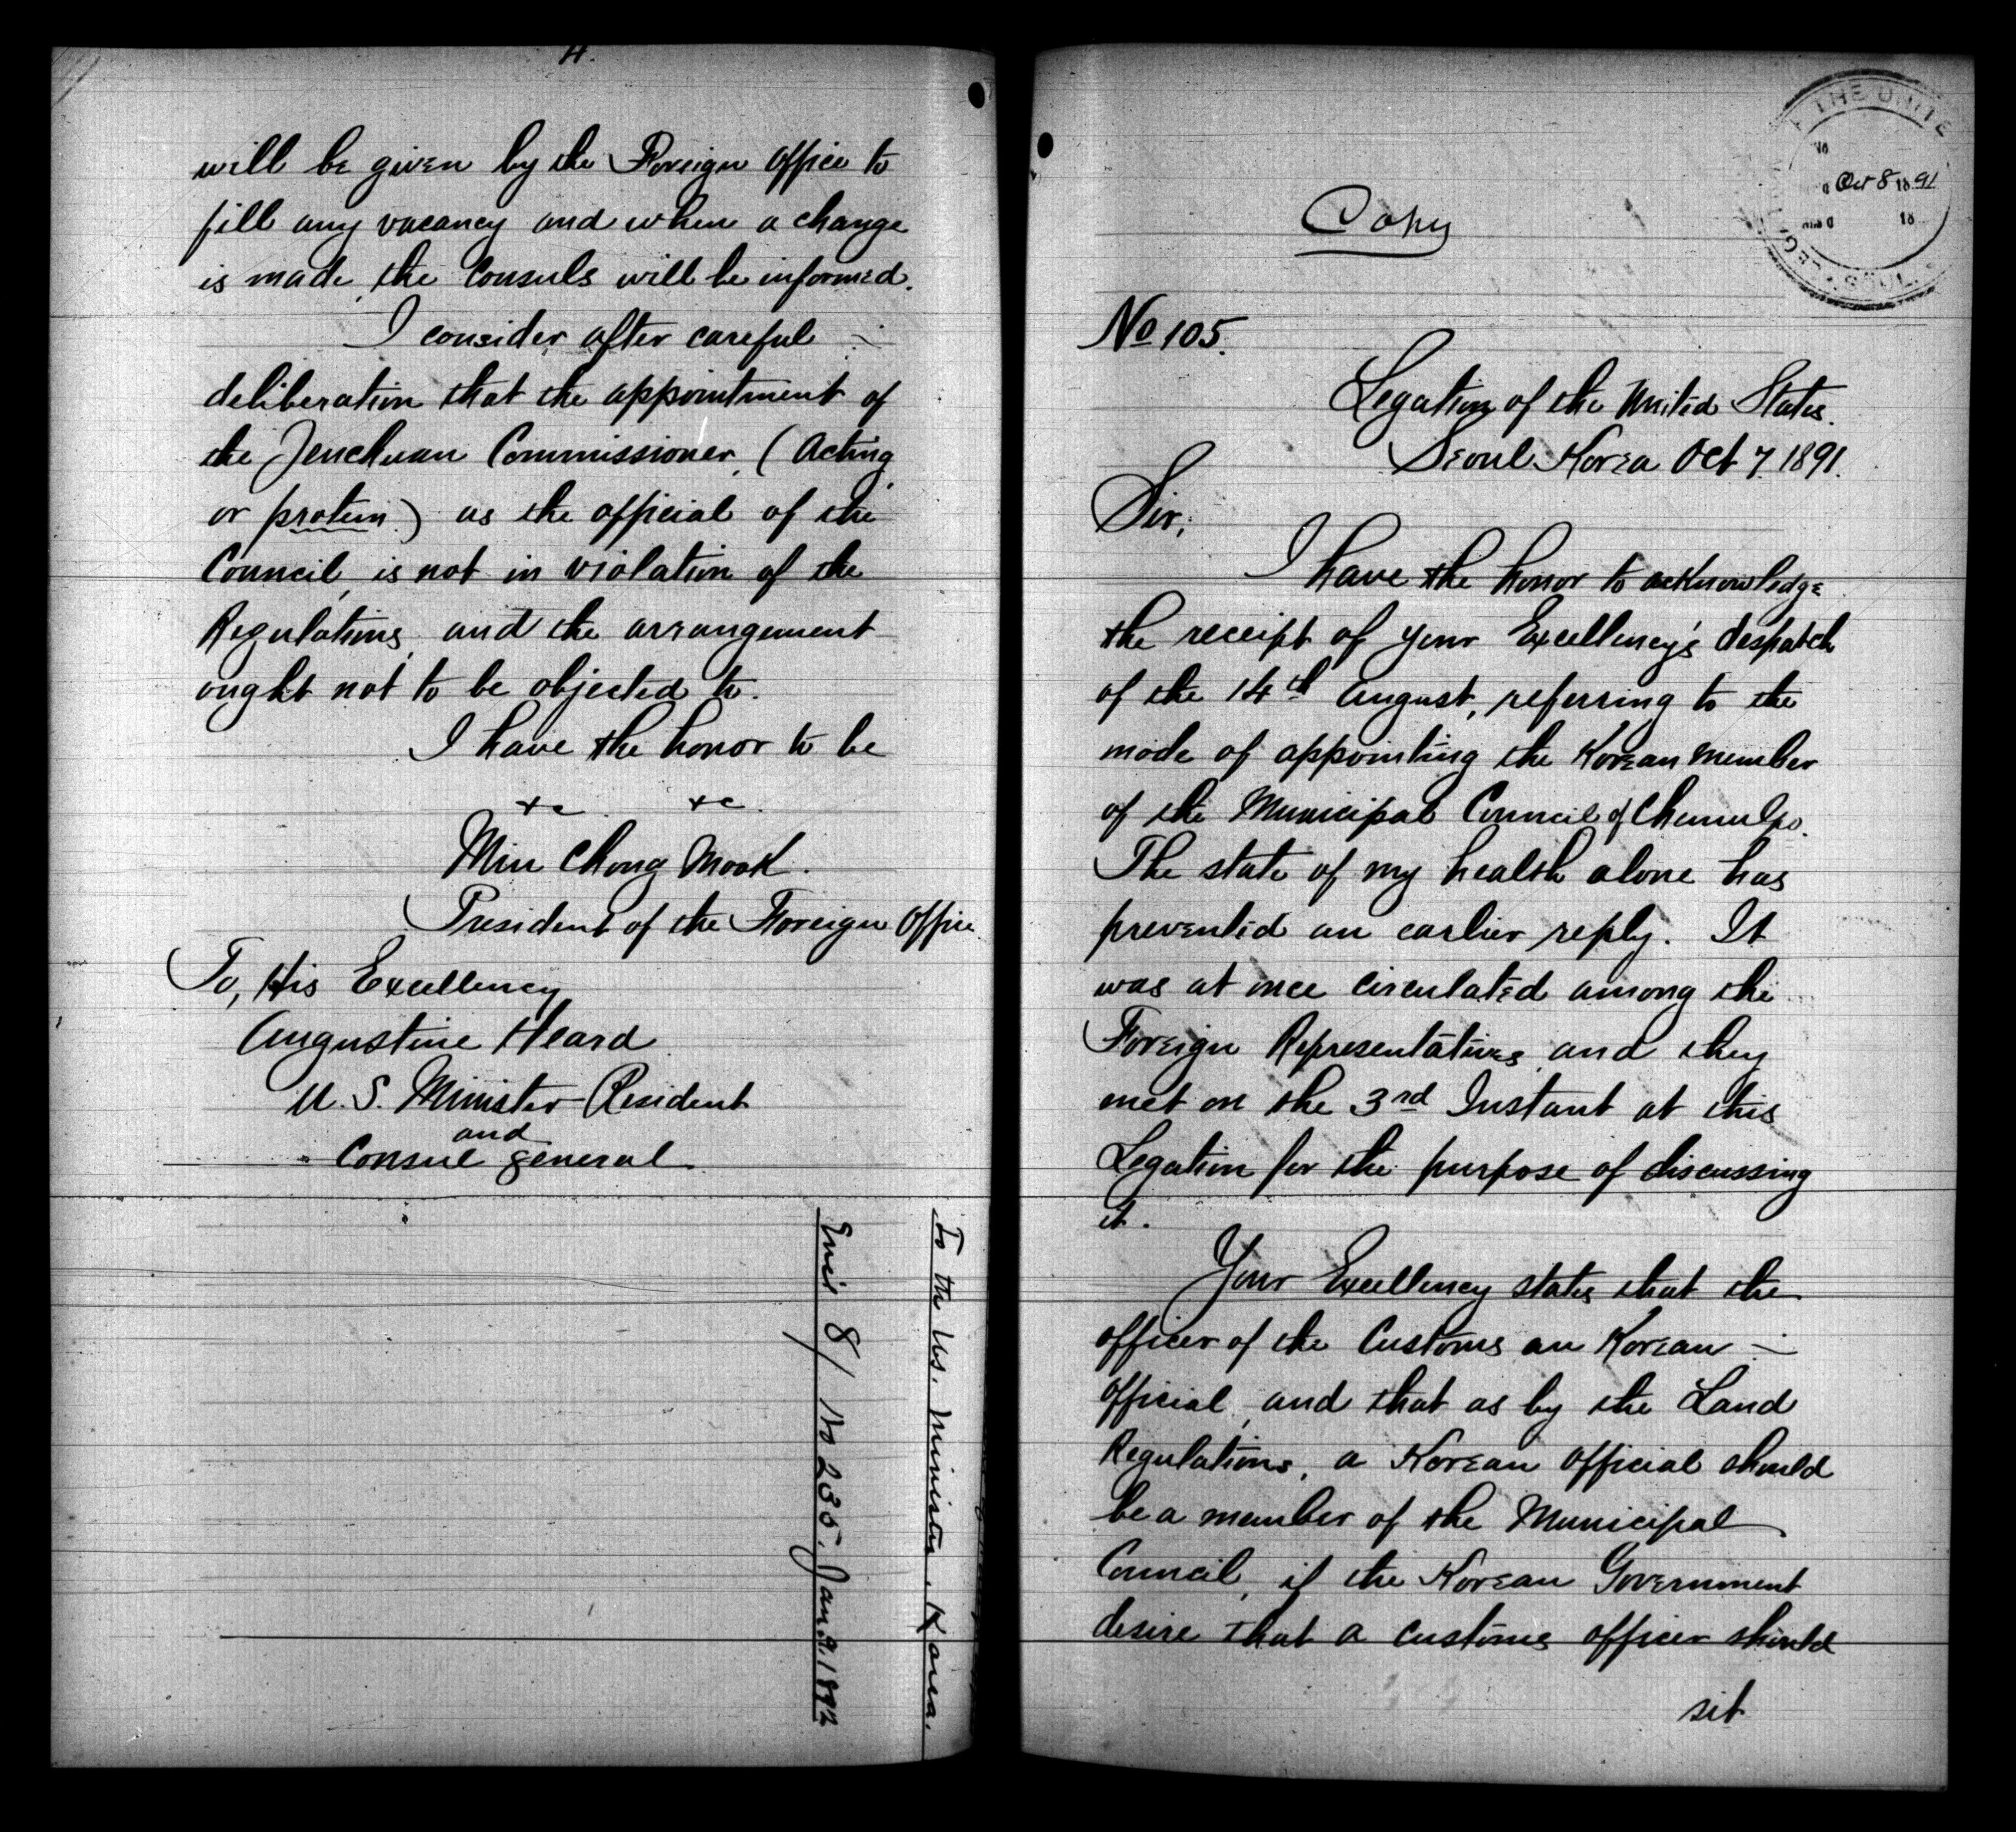 4.
will be given by the Foreign Office to
fill any vacancy and when a change
is made, the Consuls will be informed.
I consider after careful
deliberation that the appointment of
the Jenchuan Commissioner, (Acting
or protem) as the official of the
Council, is not in violation of the
Regulations, and the arrangement
ought not to be objected to.
I have the honor to be
&c &c.
Min Chong Mook.
President of the Foreign Office
To, His Excellency
Augustine Heard
U. S. Minister Resident
and
Consul General
Encl 8/ No 235. Jan. 9. 1892
To the U.S. Minister, Korea.
THE UNITE
Oct 8 1891
18
LEGA
SÖUL
Copy
No 105.
Legation of the United States.
Seoul Korea Oct 7 1891.
Sir;
I have the honor to acknowledge
the receipt of your Excellency's despatch
of the 14th August, referring to the
mode of appointing the Korean Member
of the Municipal Council of Chemulpo.
The state of my health alone has
prevented an earlier reply. It
was at once circulated among the
Foreign Representatives, and they
met on the 3rd Instant at this
Legation for the purpose of discussing
it.
Your Excellency states that the
officer of the Customs an Korean
official, and that as by the Land
Regulations, a Korean official should
be a member of the Municipal
Council, if the Korean Government
desire that a customs officer should
sit